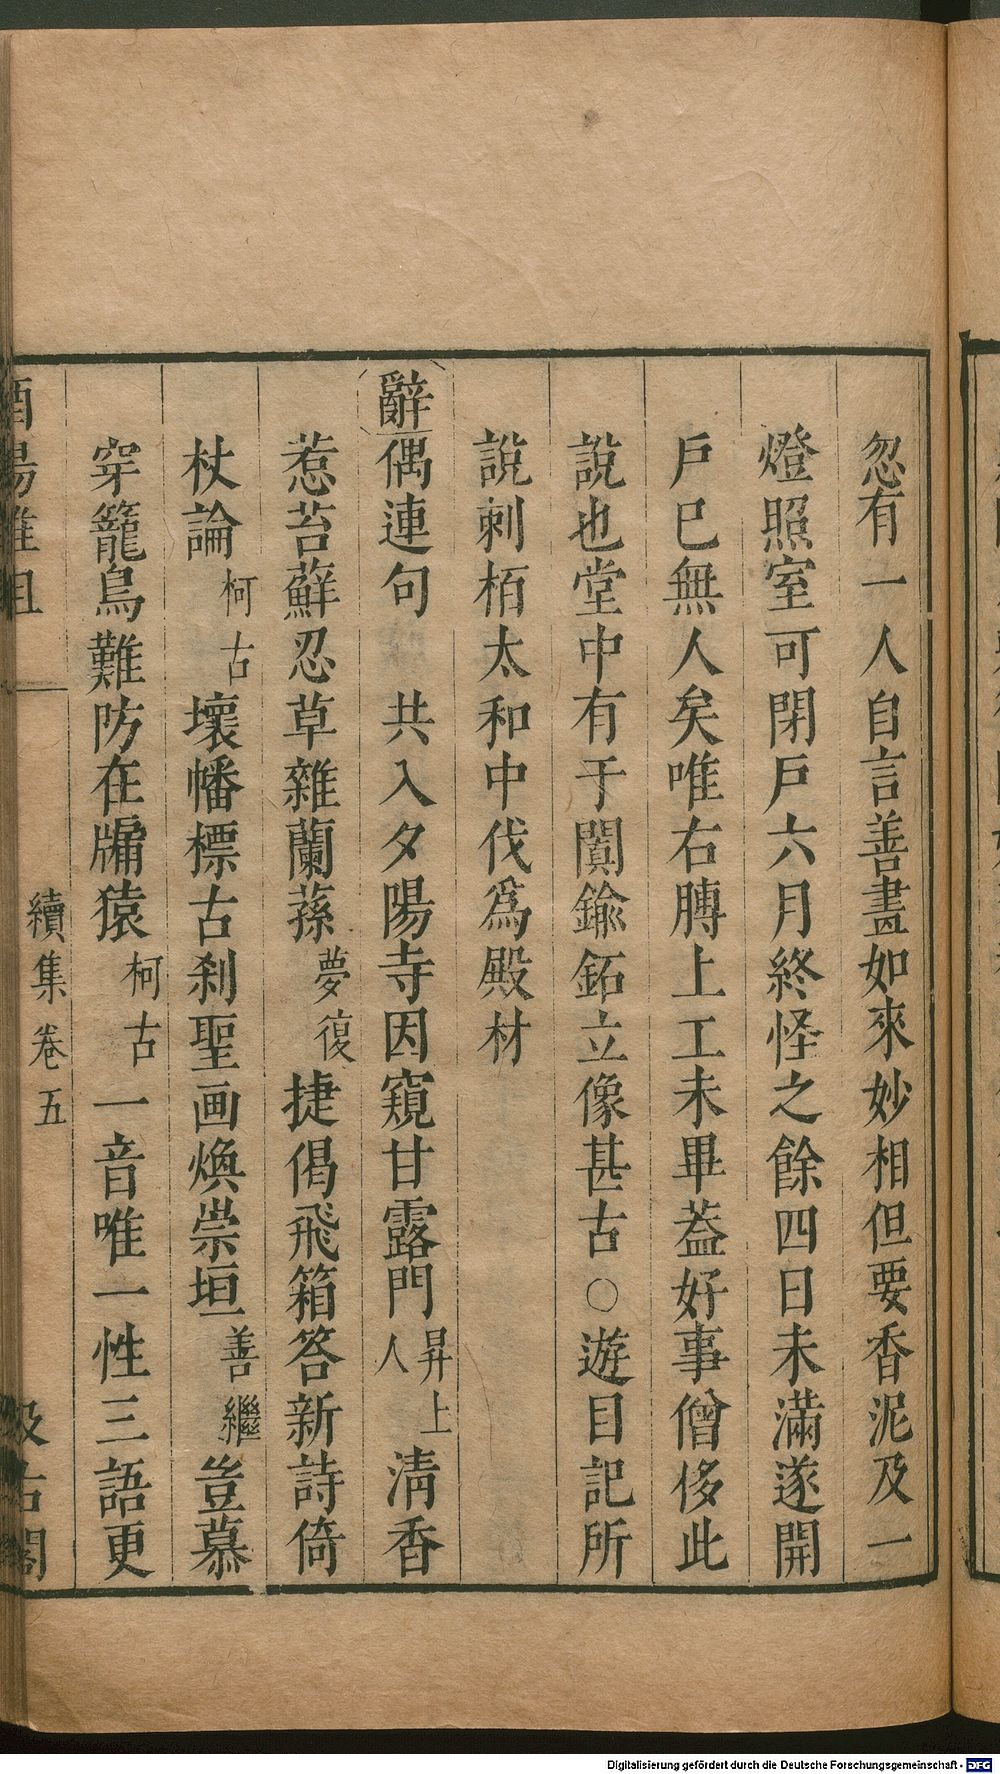 忽有一人自言善畫如來妙相但要香泥及一
燈照室可閉戶六月終怪之餘四日未滿遂開
戶已無人矣唯右膊上工未畢葢好事僧侈此
說也堂中有于闐鍮鉐立像甚古○遊目記所
說刺栢太和中伐爲殿材
辭偶連句 共入夕陽寺因窺甘露門昇上人清香
惹苔蘚忍草雜蘭蓀夢復捷偈飛箱答新詩倚
杖論柯古壞幡標古刹聖画煥崇垣善繼豈慕
穿籠鳥難防在牖猿柯古一音唯一性三語更
續集卷五
Digitalisierung gefördert durch die Deutsche Forschungsgemeinschaft - DFG